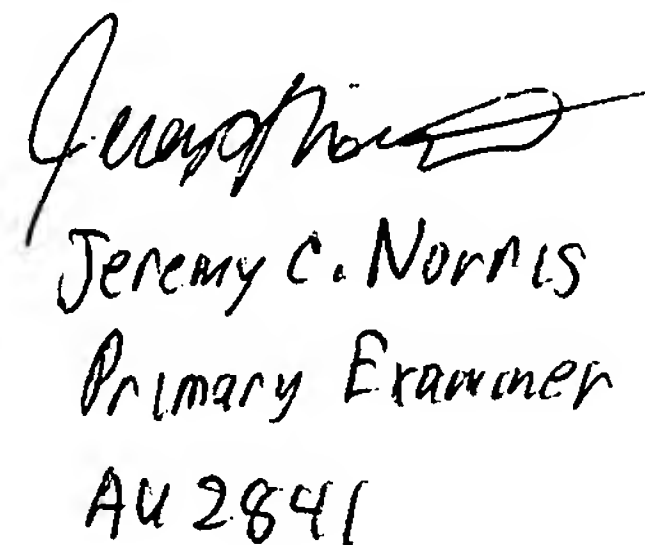 Jeremy C. Norris
Primary Examiner
AU 2841